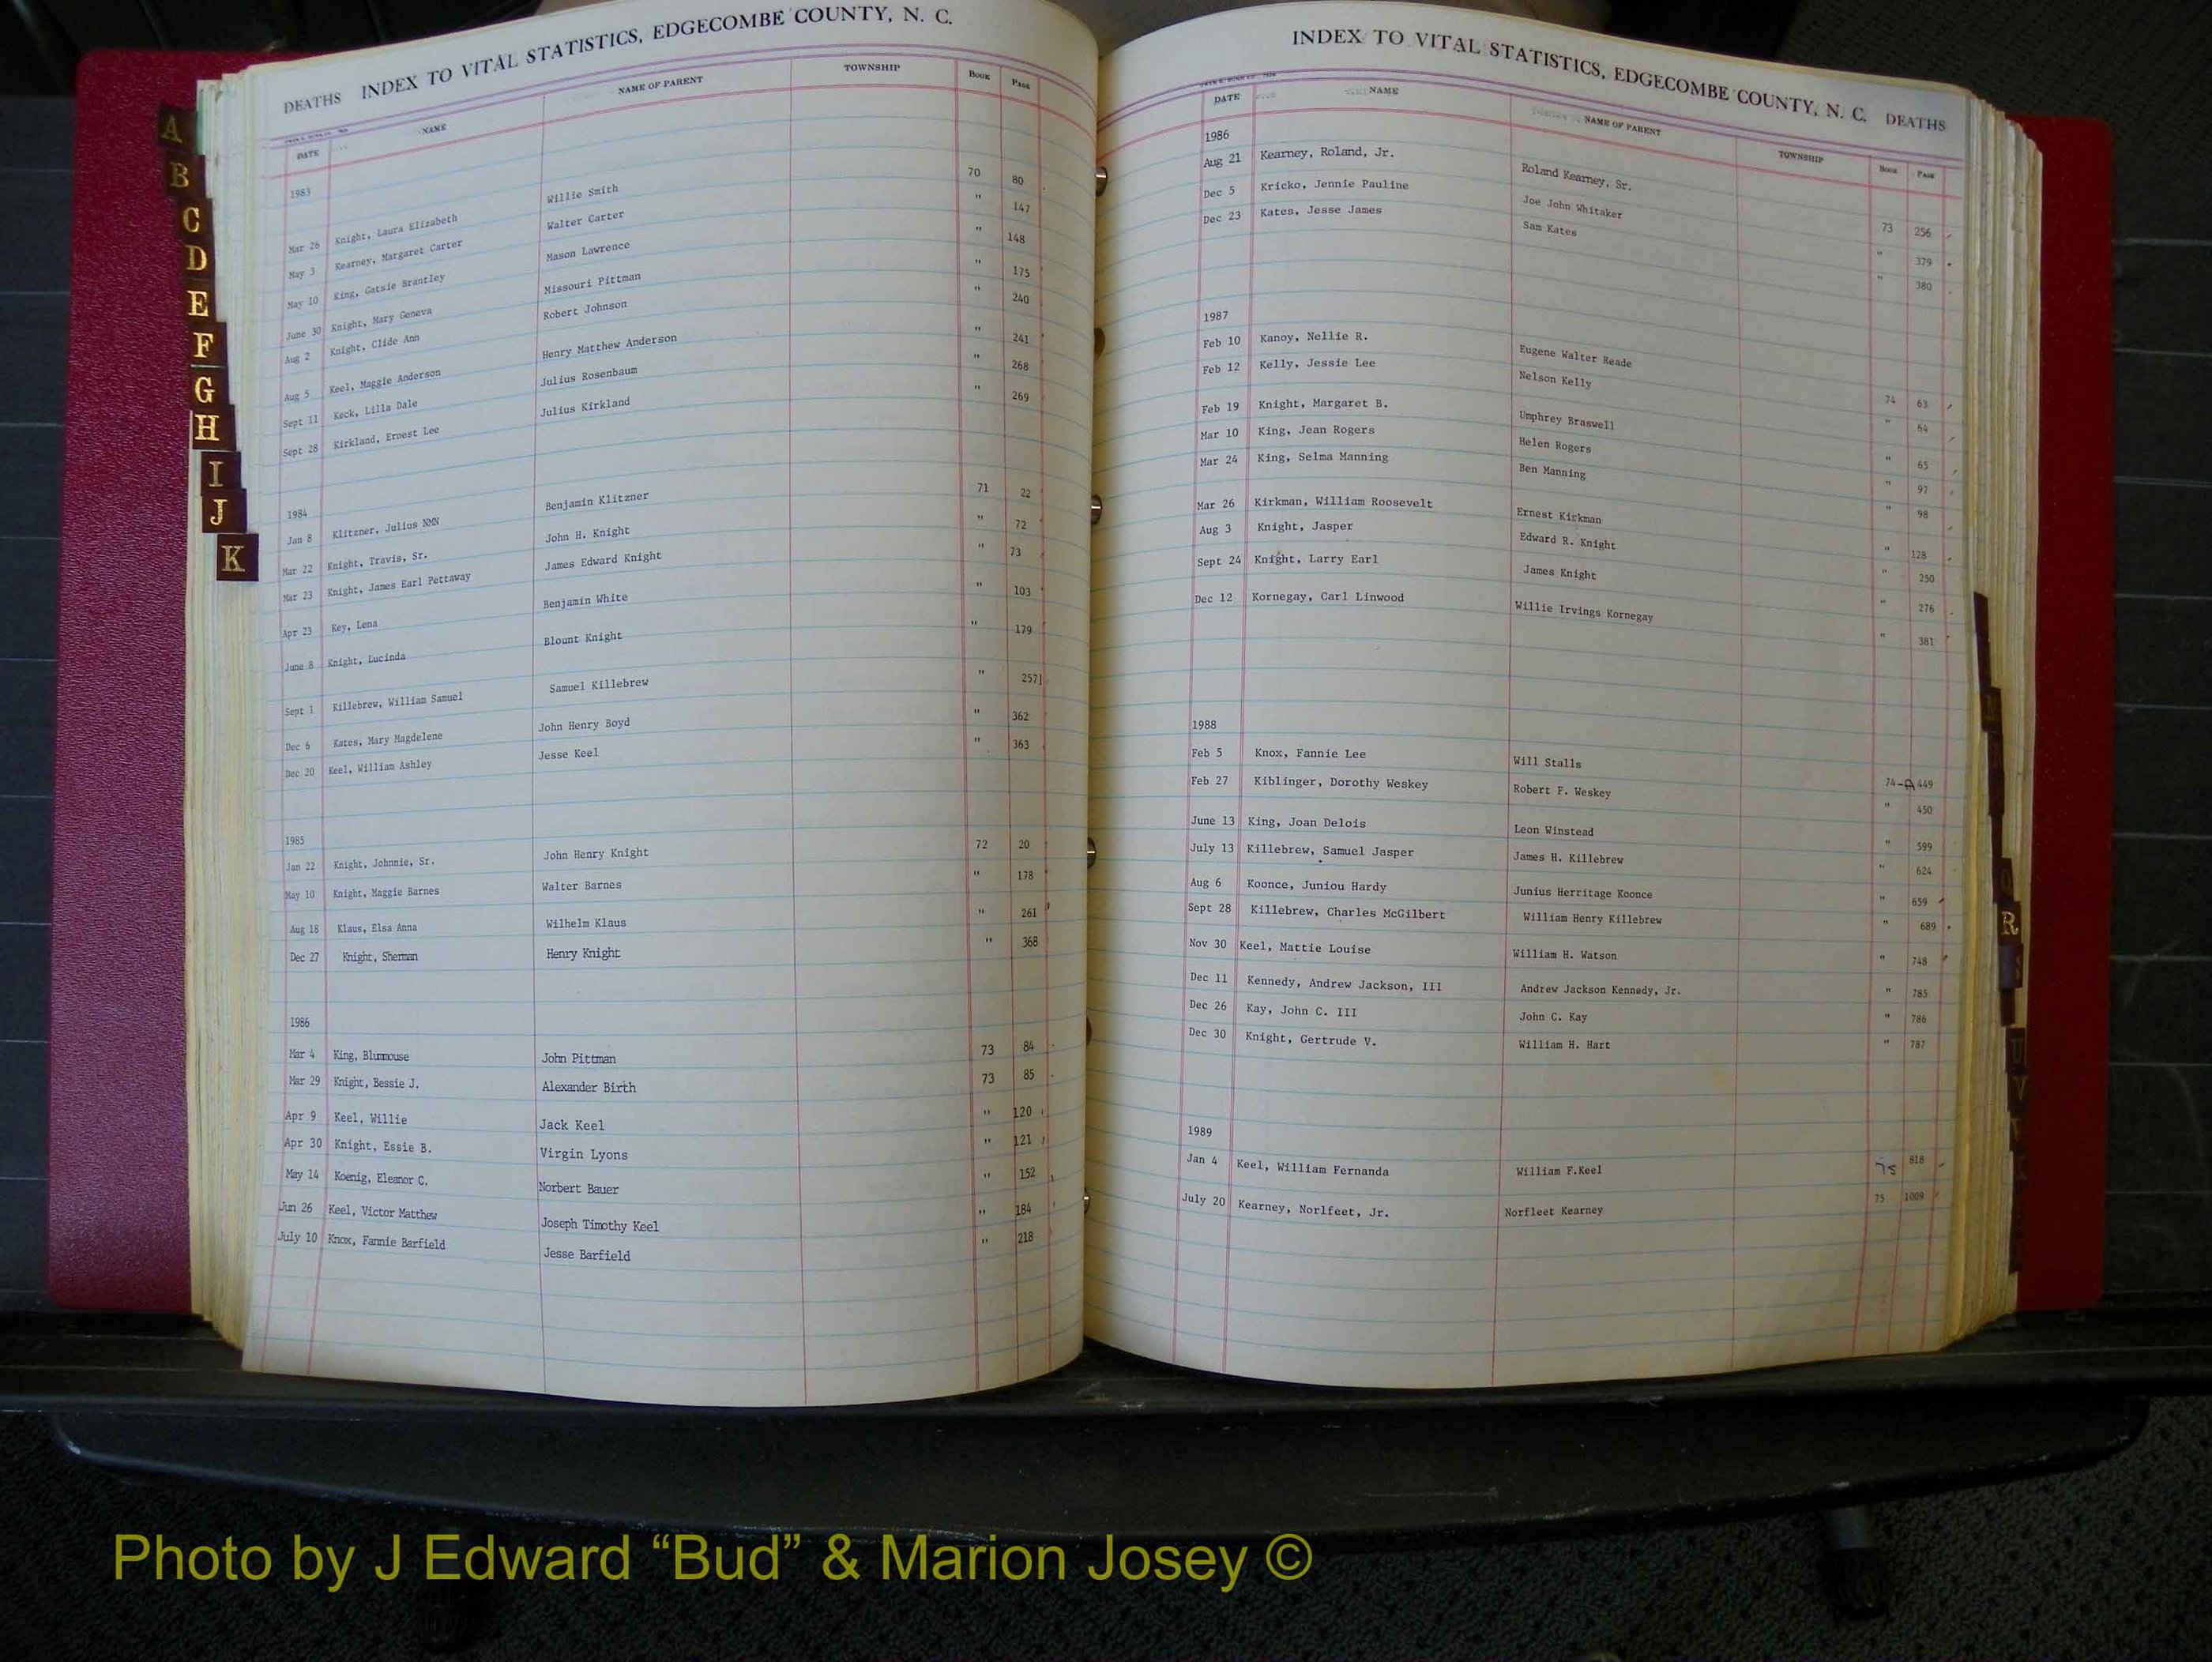 DEATHS INDEX TO VITAL STATISTICS, EDGECOMBE COUNTY, N. C.
DATE NAME NAME OF PARENT TOWNSHIP BOOK PAGE
1983
Mar 26 Knight, Laura Elizabeth Willie Smith 70 80
May 3 Kearney, Margaret Carter Walter Carter " 147
May 10 King, Gatsie Brantley Mason Lawrence " 148
June 30 Knight, Mary Geneva Missouri Pittman " 175
Aug 2 Knight, Clide Ann Robert Johnson " 240
Aug 5 Keel, Maggie Anderson Henry Matthew Anderson " 241
Sept 11 Keck, Lilla Dale Julius Rosenbaum " 268
Sept 28 Kirkland, Ernest Lee Julius Kirkland " 269
1984
Jan 8 Klitzner, Julius NMN Benjamin Klitzner 71 22
Mar 22 Knight, Travis, Sr. John H. Knight " 72
Mar 23 Knight, James Earl Pettaway James Edward Knight " 73
Apr 23 Key, Lena Benjamin White " 103
June 8 Knight, Lucinda Blount Knight " 179
Sept 1 Killebrew, William Samuel Samuel Killebrew " 257]
Dec 6 Kates, Mary Magdelene John Henry Boyd " 362
Dec 20 Keel, William Ashley Jesse Keel " 363
1985
Jan 22 Knight, Johnnie, Sr. John Henry Knight 72 20
May 10 Knight, Maggie Barnes Walter Barnes " 178
Aug 18 Klaus, Elsa Anna Wilhelm Klaus " 261
Dec 27 Knight, Sherman Henry Knight " 368
1986
Mar 4 King, Blummouse John Pittman 73 84
Mar 29 Knight, Bessie J. Alexander Birth 73 85
Apr 9 Keel, Willie Jack Keel " 120
Apr 30 Knight, Essie B. Virgin Lyons " 121
May 14 Koenig, Eleanor C. Norbert Bauer " 152
Jun 26 Keel, Victor Matthew Joseph Timothy Keel " 184
July 10 Knox, Fannie Barfield Jesse Barfield " 218
INDEX TO VITAL STATISTICS, EDGECOMBE COUNTY, N. C. DEATHS
DATE NAME NAME OF PARENT TOWNSHIP BOOK PAGE
1986
Aug 21 Kearney, Roland, Jr. Roland Kearney, Sr. 73 256
Dec 5 Kricko, Jennie Pauline Joe John Whitaker " 379
Dec 23 Kates, Jesse James Sam Kates " 380
1987
Feb 10 Kanoy, Nellie R. Eugene Walter Reade 74 63
Feb 12 Kelly, Jessie Lee Nelson Kelly " 64
Feb 19 Knight, Margaret B. Umphrey Braswell " 65
Mar 10 King, Jean Rogers Helen Rogers " 97
Mar 24 King, Selma Manning Ben Manning " 98
Mar 26 Kirkman, William Roosevelt Ernest Kirkman " 128
Aug 3 Knight, Jasper Edward R. Knight " 250
Sept 24 Knight, Larry Earl James Knight " 276
Dec 12 Kornegay, Carl Linwood Willie Irvings Kornegay " 381
1988
Feb 5 Knox, Fannie Lee Will Stalls 74-A 449
Feb 27 Kiblinger, Dorothy Weskey Robert F. Weskey " 450
June 13 King, Joan Delois Leon Winstead " 599
July 13 Killebrew, Samuel Jasper James H. Killebrew " 624
Aug 6 Koonce, Juniou Hardy Junius Herritage Koonce " 659
Sept 28 Killebrew, Charles McGilbert William Henry Killebrew " 689
Nov 30 Keel, Mattie Louise William H. Watson " 748
Dec 11 Kennedy, Andrew Jackson, III Andrew Jackson Kennedy, Jr. " 785
Dec 26 Kay, John C. III John C. Kay " 786
Dec 30 Knight, Gertrude V. William H. Hart " 787
1989
Jan 4 Keel, William Fernanda William F.Keel 75 818
July 20 Kearney, Norlfeet, Jr. Norfleet Kearney 75 1009
A
B
C
D
E
F
G
H
I
J
K
R
U
V
Photo by J Edward “Bud” & Marion Josey ©